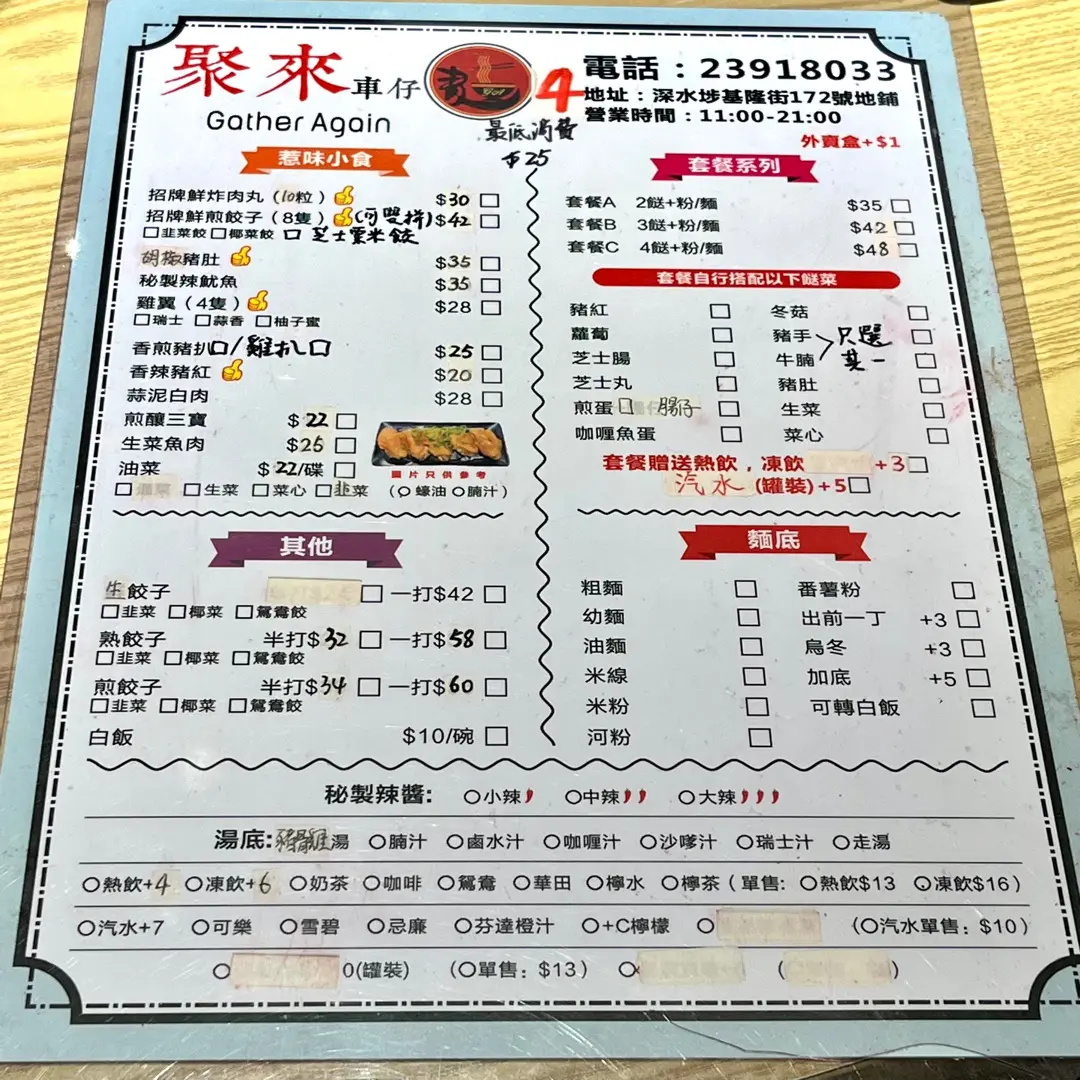 聚來車仔麵
Gather Again
4
最底消費
$25
電話：23918033
地址：深水埗基隆街172號地鋪
營業時間：11:00-21:00
外賣盒+$1
惹味小食
招牌鮮炸肉丸（10粒） $30
招牌鮮煎餃子（8隻）(可雙拼) $42
韭菜餃 椰菜餃 芝士粟米餃
胡椒豬肚 $35
秘製辣魷魚 $35
雞翼（4隻） $28
瑞士 蒜香 柚子蜜
香煎豬扒/雞扒 $25
香辣豬紅 $20
蒜泥白肉 $28
煎釀三寶 $22
生菜魚肉 $25
油菜 $22/碟
圖片只供參考
生菜 菜心 韭菜 （蠔油 腩汁）
套餐系列
套餐A 2餸+粉/麵 $35
套餐B 3餸+粉/麵 $42
套餐C 4餸+粉/麵 $48
套餐自行搭配以下餸菜
豬紅 冬菇
蘿蔔 豬手
芝士腸 牛腩
只選其一
芝士丸 豬肚
煎蛋 腸仔 生菜
咖喱魚蛋 菜心
套餐贈送熱飲，凍飲 +3
汽水 (罐裝)+5
其他
生餃子 一打$42
韭菜 椰菜 鴛鴦餃
熟餃子 半打$32 一打$58
韭菜 椰菜 鴛鴦餃
煎餃子 半打$34 一打$60
韭菜 椰菜 鴛鴦餃
白飯 $10/碗
麵底
粗麵 番薯粉
幼麵 出前一丁 +3
油麵 烏冬 +3
米線 加底 +5
米粉 可轉白飯
河粉
秘製辣醬: 小辣 中辣 大辣
湯底: 湯 腩汁 鹵水汁 咖喱汁 沙嗲汁 瑞士汁 走湯
熱飲+4 凍飲+6 奶茶 咖啡 鴛鴦 華田 檸水 檸茶（單售: 熱飲$13 凍飲$16）
汽水+7 可樂 雪碧 忌廉 芬達橙汁 +C檸檬 （汽水單售：$10）
0(罐裝) （單售：$13） （ ）